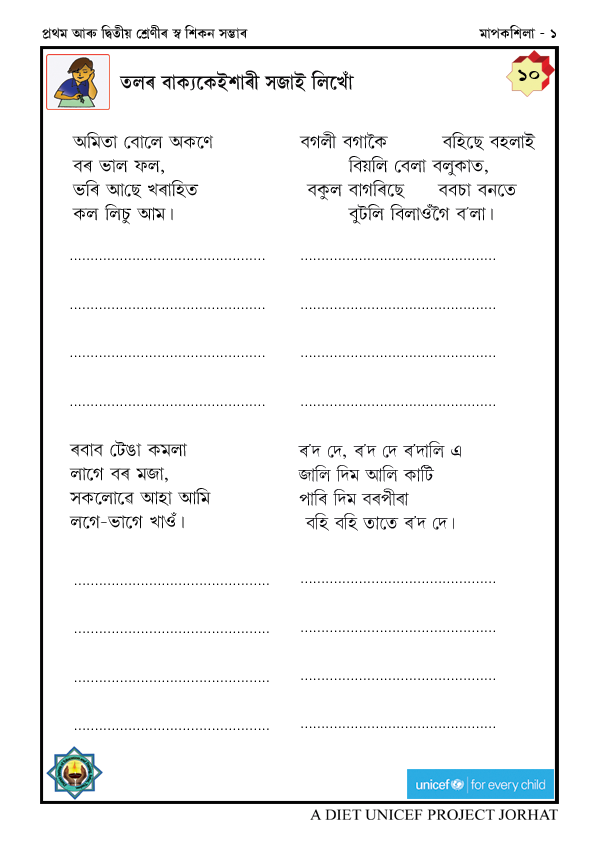 প্ৰথম আৰু দ্বিতীয় শ্ৰেণীৰ স্ব শিকন সম্ভাৰ
মাপকশিলা - ১
তলৰ বাক্যকেইশাৰী সজাই লিখোঁ
১০
অমিতা বোলে অকণে
বৰ ভাল ফল,
ভৰি আছে খৰাহিত
কল লিচু আম।
বগলী বগাকৈ বহিছে বহলাই
বিয়লি বেলা বলুকাত,
বকুল বাগৰিছে ববচা বনতে
বুটলি বিলাওঁগৈ ব'লা।
ৰবাব টেঙা কমলা
লাগে বৰ মজা,
সকলোৱে আহা আমি
লগে-ভাগে খাওঁ।
ৰ'দ দে, ৰ'দ দে ৰ'দালি এ
জালি দিম আলি কাটি
পাৰি দিম বৰপীৰা
বহি বহি তাতে ৰ'দ দে।
unicef for every child
A DIET UNICEF PROJECT JORHAT